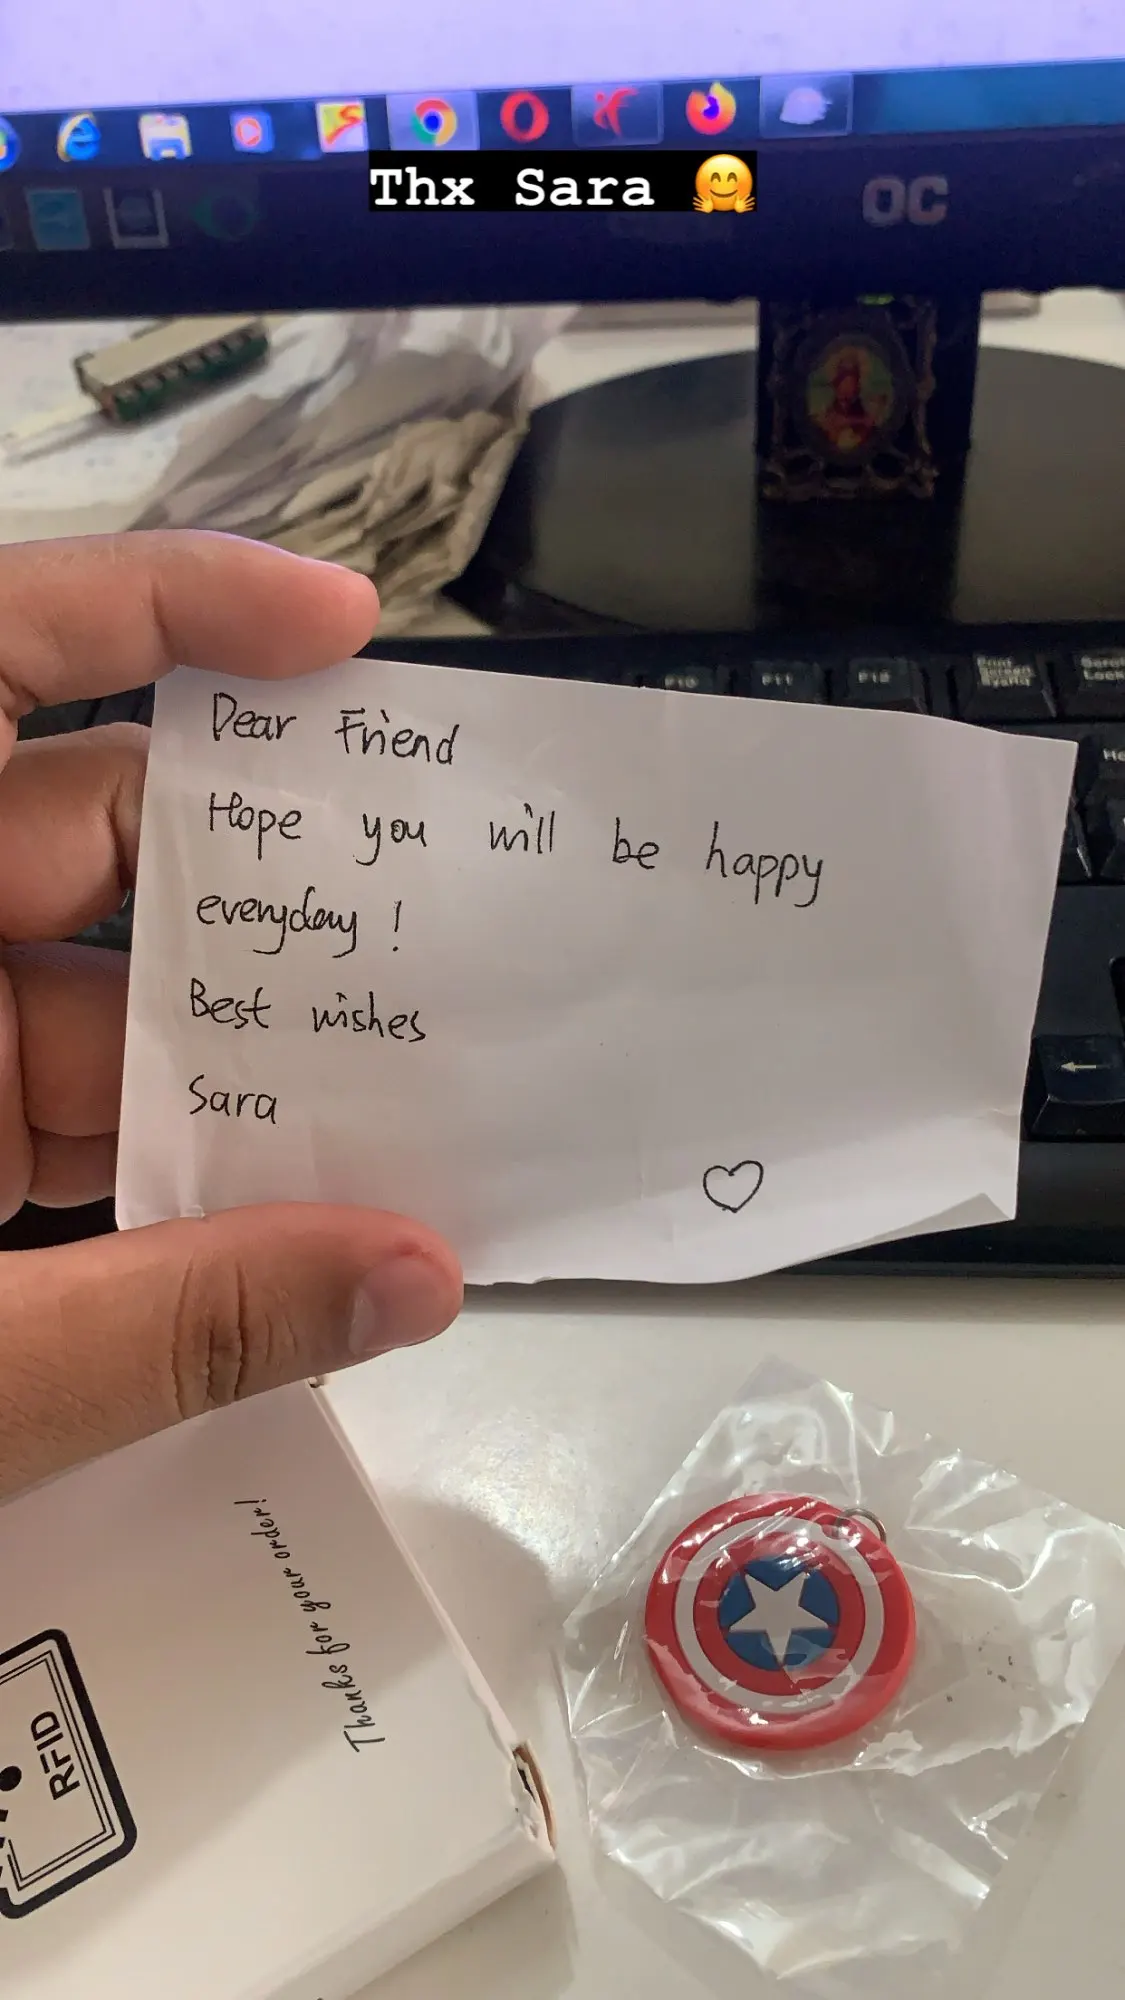 Thx Sara 🤗
OC
F10 F11 F12 Print Screen SysRq
Dear Friend
Hope you will be happy
everyday !
Best wishes
Sara
♡
Thanks for your order!
RFID